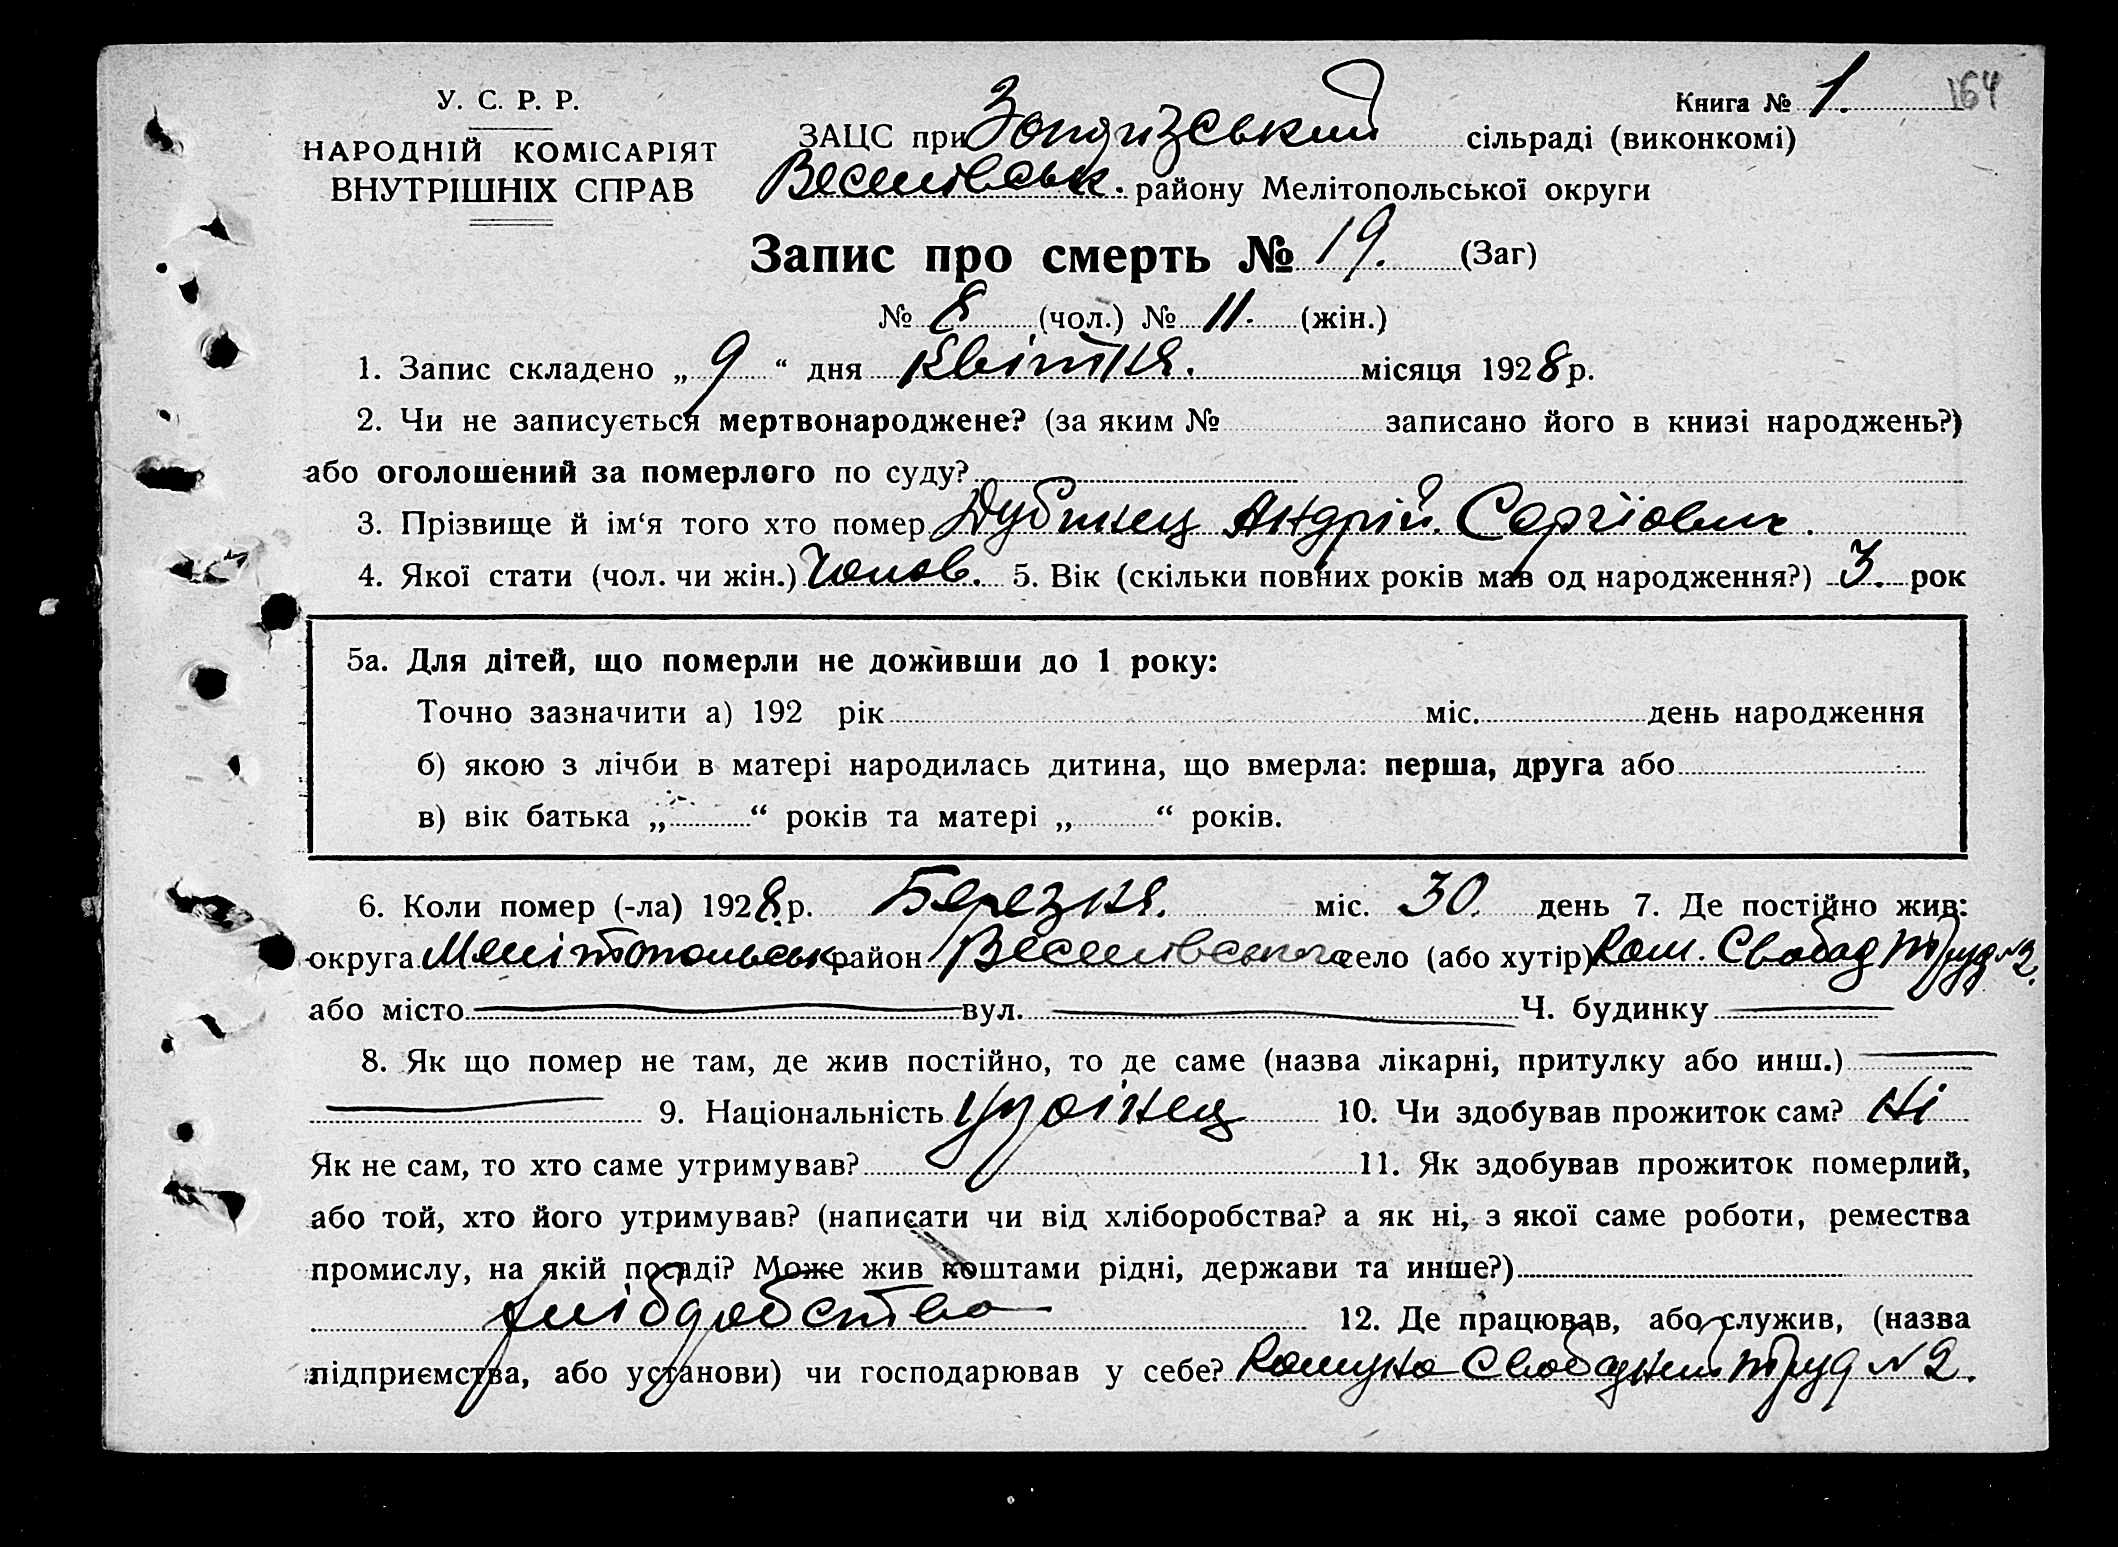 Книга № 1. 164
У. С. Р. Р.
НАРОДНІЙ КОМІСАРІЯТ
ВНУТРІШНІХ СПРАВ
ЗАЦС при сільраді (виконкомі)
Веселівськ. району Мелітопольської округи
Запис про смерть № 19. (Заг)
№ 8 (чол.) № 11. (жін.)
1. Запис складено „ 9 “ дня Квітня. місяця 1928 р.
2. Чи не записується мертвонароджене? (за яким № записано його в книзі народжень?)
або оголошений за померлого по суду?
3. Прізвище й ім‘я того хто помер Дубинец Андрій Сергіович.
4. Якої стати (чол. чи жін.) Чолов. 5. Вік (скільки повних років мав од народження?) 3. рок
5а. Для дітей, що померли не доживши до 1 року:
Точно зазначити а) 192 рік міс. день народження
б) якою з лічби в матері народилась дитина, що вмерла: перша, друга або
в) вік батька „ “ років та матері „ “ років.
6. Коли помер (-ла) 1928 р. Березня. міс. 30. день 7. Де постійно жив:
округа Мелітопольськ район Веселівського село (або хутір) Ком. Свобод Труд №2.
або місто вул. Ч. будинку
8. Як що помер не там, де жив постійно, то де саме (назва лікарні, притулку або инш.)
9. Національність Украінец 10. Чи здобував прожиток сам? Ні
Як не сам, то хто саме утримував? 11. Як здобував прожиток померлий,
або той, хто його утримував? (написати чи від хліборобства? а як ні, з якої саме роботи, ремества
промислу, на якій посаді? Може жив коштами рідні, держави та инше?)
хлібробство 12. Де працював, або служив, (назва
підприємства, або установи) чи господарював у себе? Комуна Свободний Труд №2.